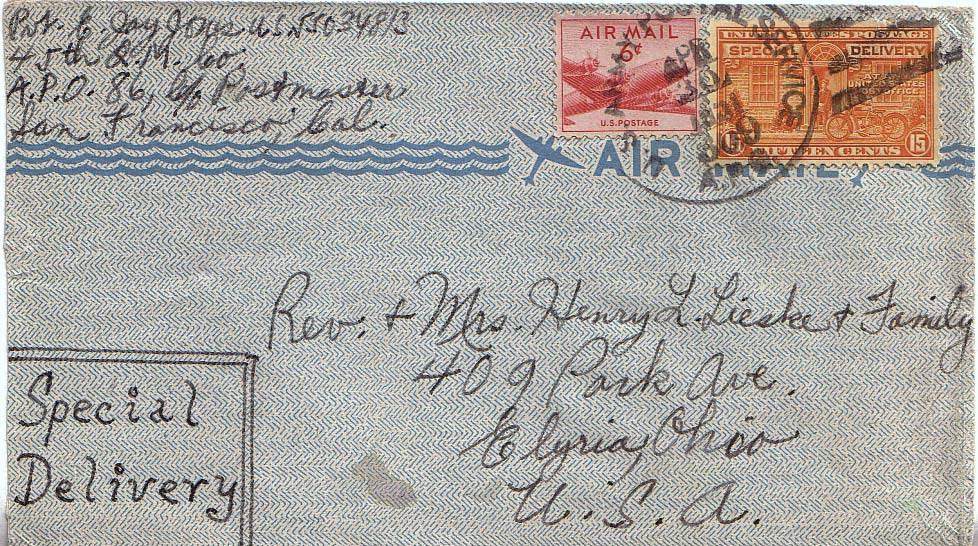 Pvt. C. Jay Jones U.S. 55034813
45th Q.M. Co.
A.P.O. 86, c/o Postmaster
San Francisco Cal.
AIR MAIL
6¢
U.S. POSTAGE
UNITED STATES POSTAGE
SPECIAL DELIVERY
AT ANY
UNITED STATES
POST OFFICE
FIFTEEN CENTS 15
POSTAL SERVICE
AIR MAIL
Rev. + Mrs. Henry L. Lieske + Family
409 Park Ave.
Elyria, Ohio
U.S.A.
Special
Delivery